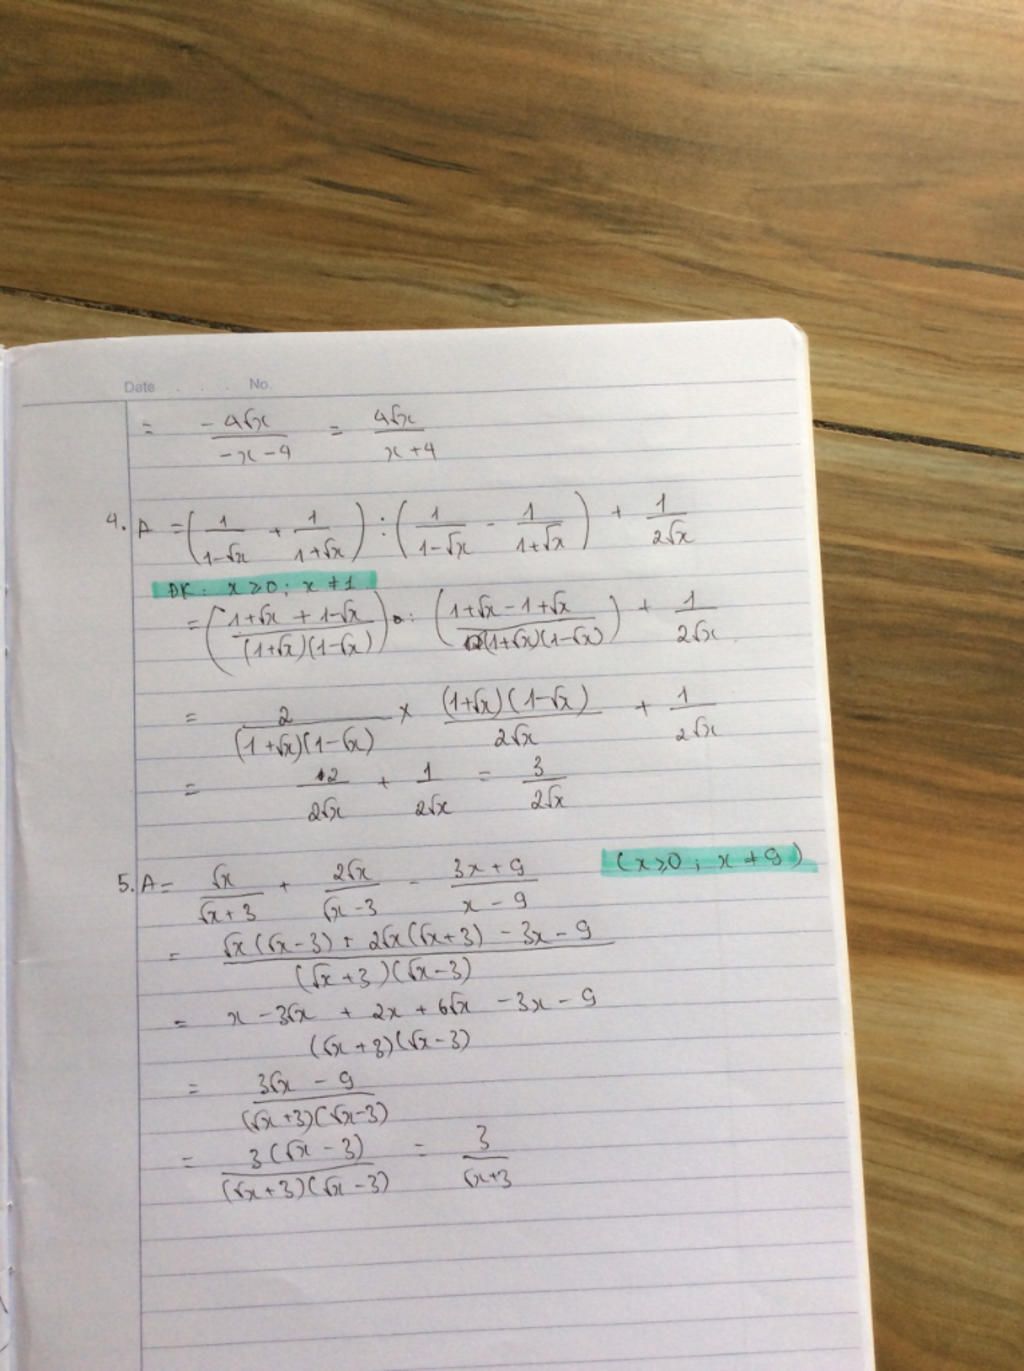 Date . . . No.
= -4√x/(-x-4) = 4√x/(x+4)
4. A = (1/(1-√x) + 1/(1+√x)) : (1/(1-√x) - 1/(1+√x)) + 1/(2√x)
ĐK: x ≥ 0; x ≠ 1
= ((1+√x + 1-√x)/((1+√x)(1-√x))) : ((1+√x - 1+√x)/((1+√x)(1-√x))) + 1/(2√x)
= 2/((1+√x)(1-√x)) × ((1+√x)(1-√x))/(2√x) + 1/(2√x)
= 2/(2√x) + 1/(2√x) = 3/(2√x)
5. A = √x/(√x+3) + 2√x/(√x-3) - (3x+9)/(x-9) (x ≥ 0; x ≠ 9)
= (√x(√x-3) + 2√x(√x+3) - 3x - 9)/((√x+3)(√x-3))
= (x - 3√x + 2x + 6√x - 3x - 9)/((√x+3)(√x-3))
= (3√x - 9)/((√x+3)(√x-3))
= (3(√x-3))/((√x+3)(√x-3)) = 3/(√x+3)